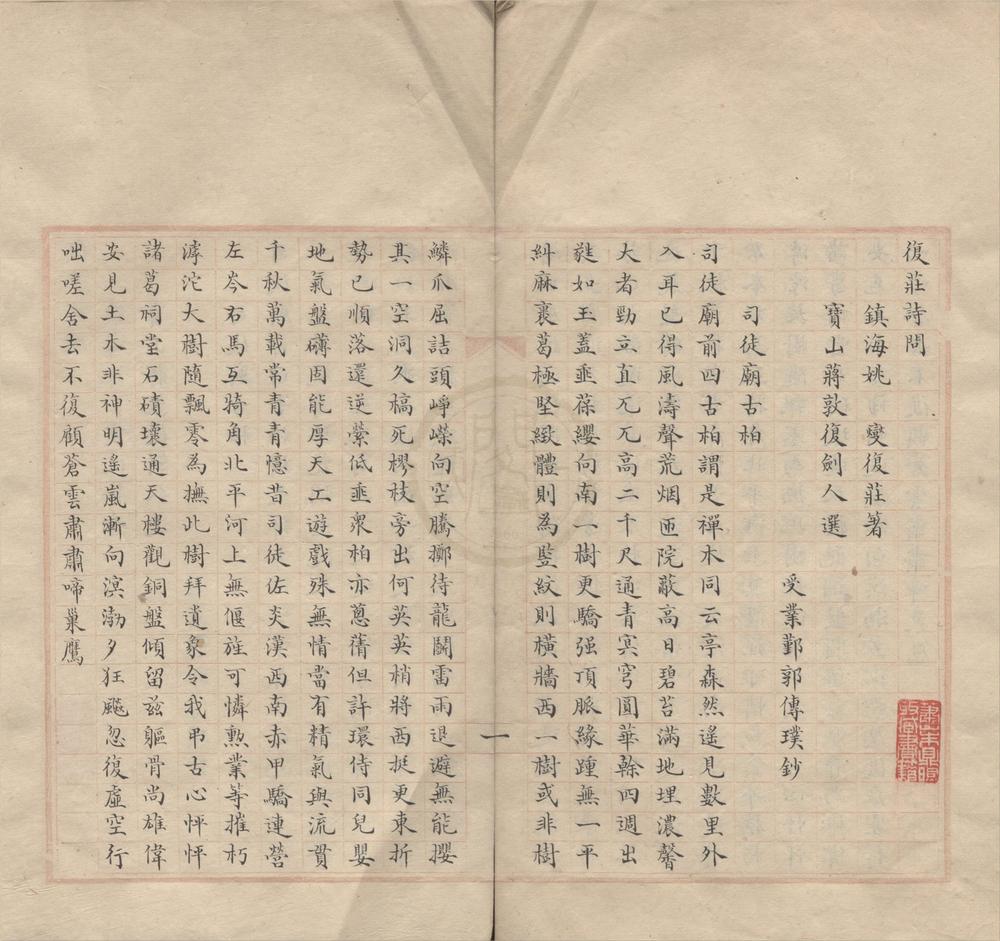 復莊詩問
鎮海姚燮復莊著
寶山蔣敦復劍人選
受業鄞郭傳璞鈔
司徒廟古柏
司徒廟前四古柏謂是禪木同云亭森然遙見數里外
入耳已得風濤聲荒烟匝院蔽高日碧苔滿地埋濃馨
大者勁立直兀兀高二千尺通青冥穹圓華榦四週出
毵如玉蓋垂葆纓向南一樹更驕强頂脈緣踵無一平
糾麻裹葛極堅緻體則為豎紋則橫牆西一樹或非樹
一
鱗爪屈詰頭崢嶸向空騰擲待龍鬭雷雨退避無能攖
其一空洞久槁死樛枝旁出何英英梢將西挺更東折
勢已順落還逆縈低垂衆柏亦蔥蒨但許環侍同兒嬰
地氣盤礴固能厚天工遊戲殊無情當有精氣與流貫
千秋萬載常青青憶昔司徒佐炎漢西南赤甲驕連營
左岑右馬互犄角北平河上無偃旌可憐勲業等摧朽
滹沱大樹隨飄零為撫此樹拜遺象令我弔古心怦怦
諸葛祠堂石磧壞通天樓觀銅盤傾留玆軀骨尚雄偉
安見土木非神明遙嵐漸向溟渤夕狂飈忽復虛空行
咄嗟舍去不復顧蒼雲肅肅啼巢鷹